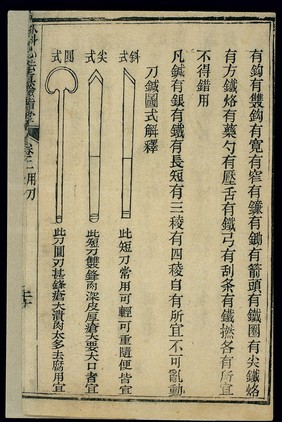 有鈎有雙鈎有寬有窄有鐮有鋤有箭頭有鐵圈有尖鐵烙
有方鐵烙有藥勺有壓舌有鐵弓有刮条有鐵撚各有所宜
不得错用
凡鍼有銀有鐵有長短有三稜有四稜自有所宜不可亂動
刀鍼圖式解釋
斜式
此短刀常用可輕可重隨便皆宜
尖式
此短刀雙鋒肉深皮厚瘡大要大口者宜
圓式
此刀圓刃甚鋒瘡大潰肉太多去腐用宜
卷二 用刀